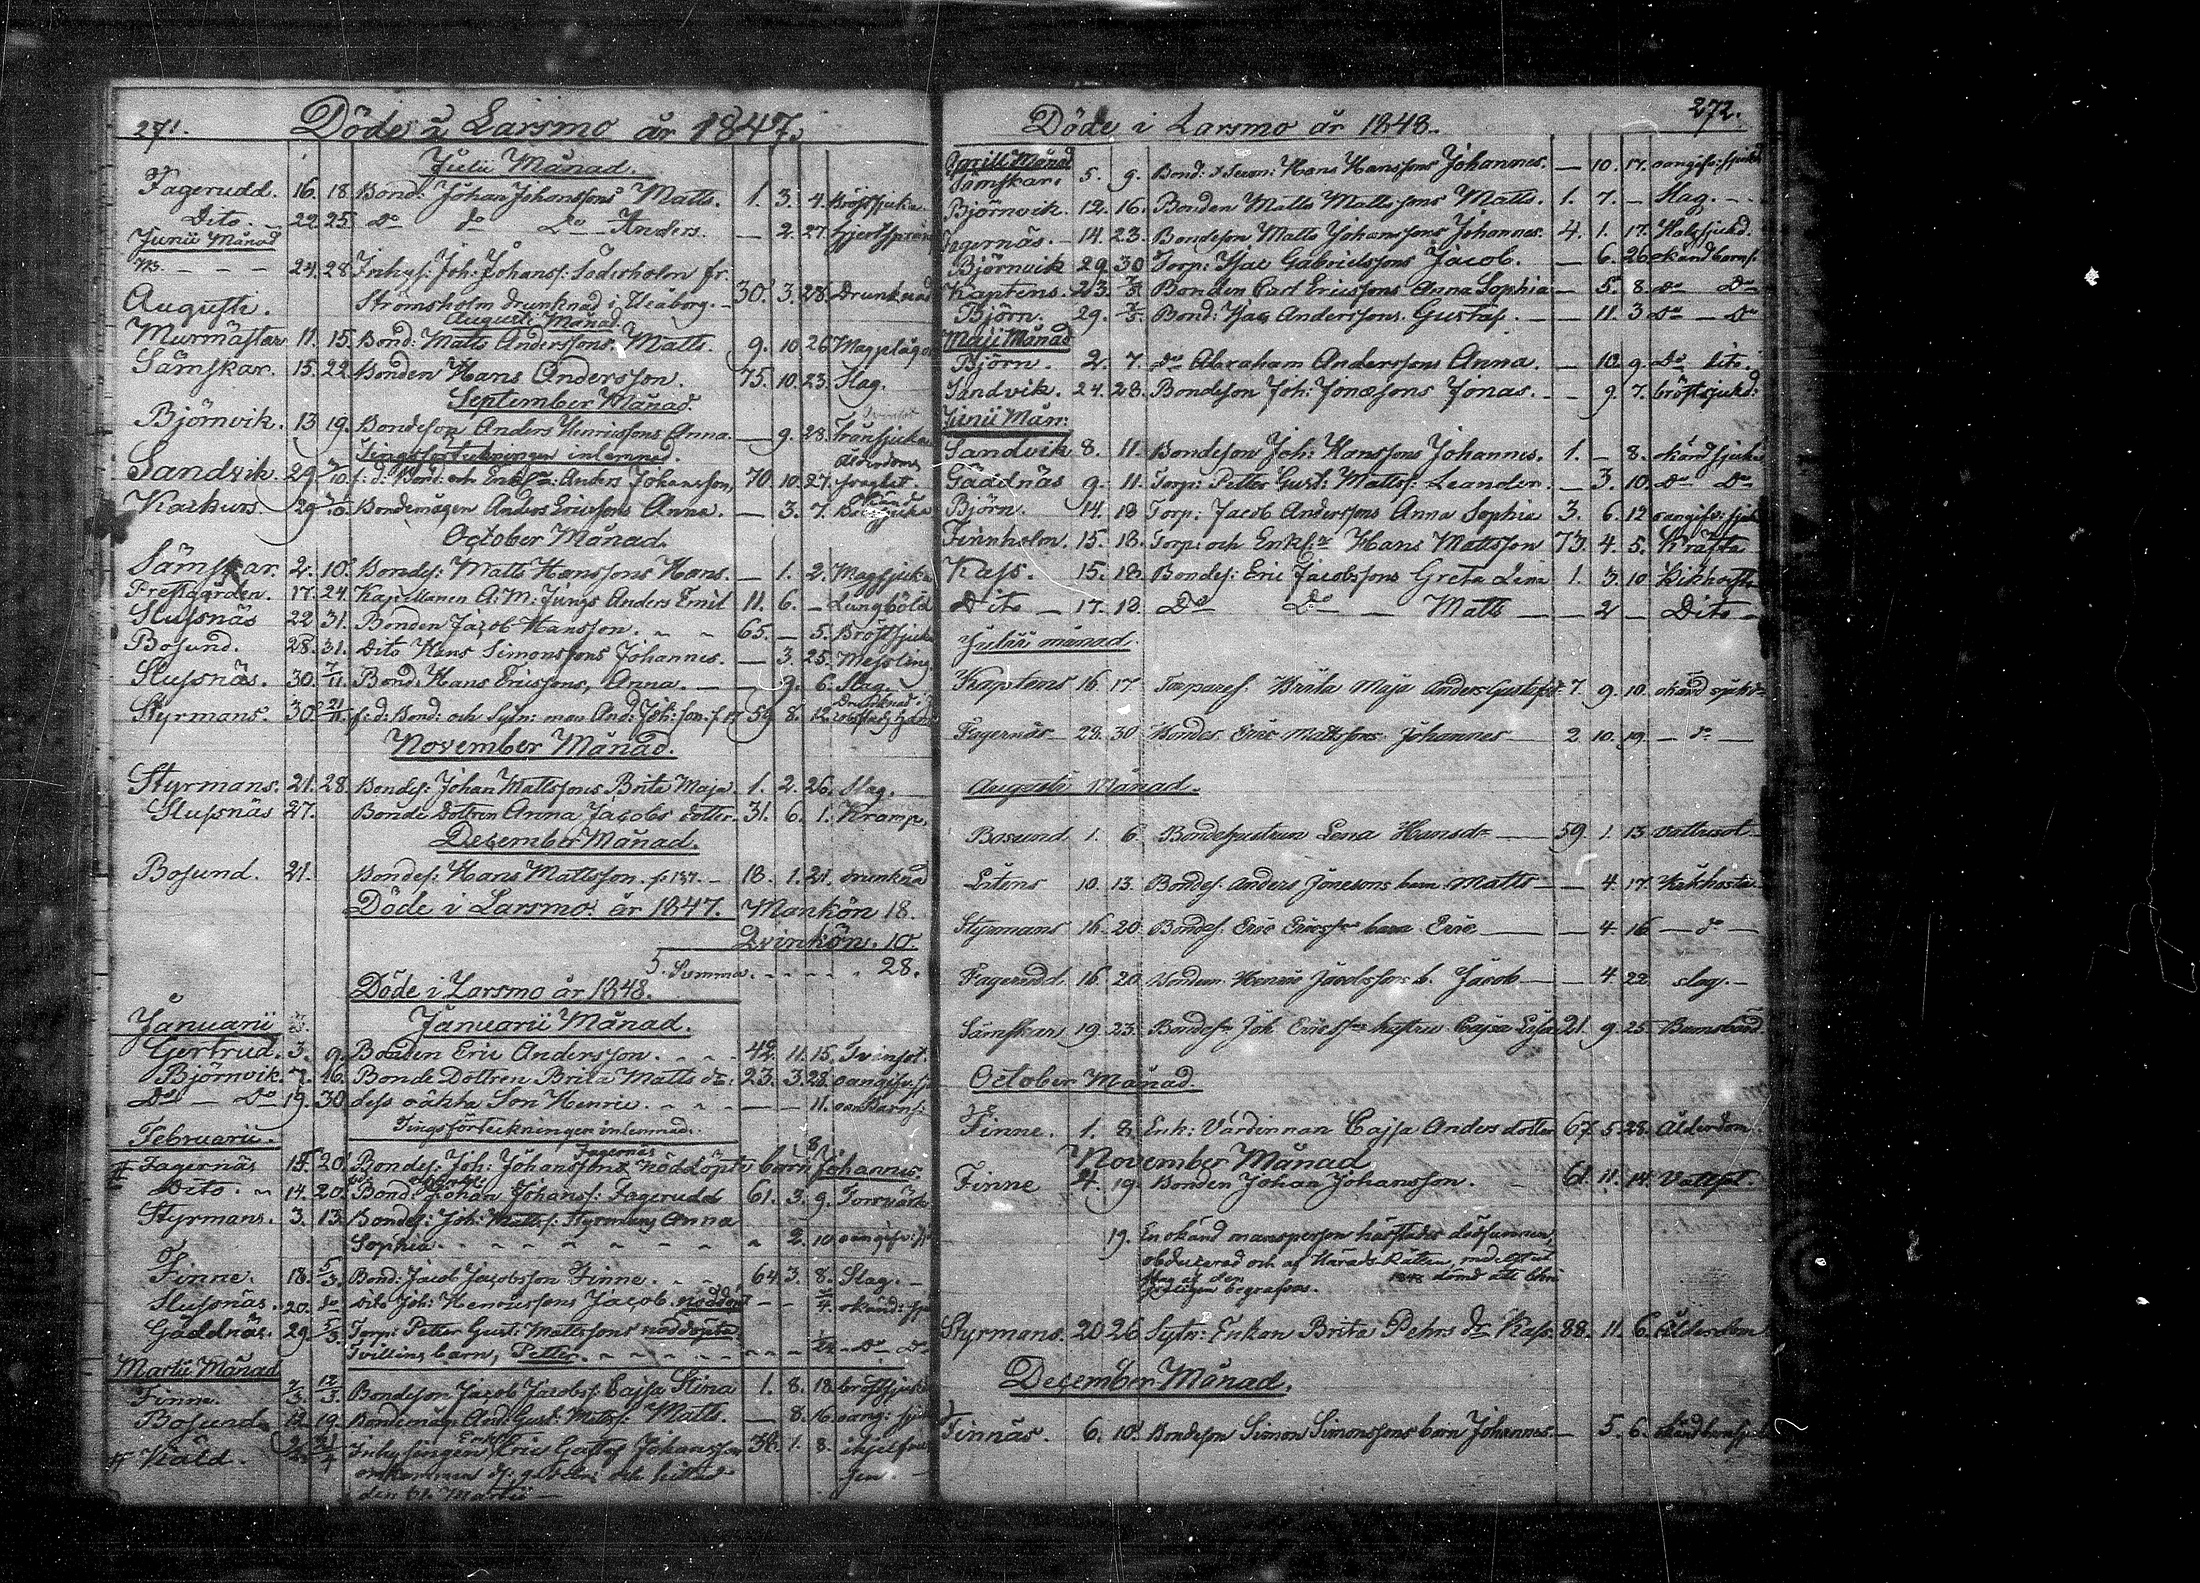 271.
Döde i Larsmo år 1847.
Julii Månad.
Fagerudd. 16. 18. Bond: Johan Johanssons Matts. 1. 3. 4. Bröstsjuka
Dito. 22 25. do do Do Anders. — 2. 27. hjertsprång
Junii Månad
24. 28. Inhys: Joh: Johanss: Söderholm fr.
Strömsholm drunknad i Uleåborg. 30. 3. 28. Drunknad
Augusti.
Augusti Månad.
Murmästar. 11. 15. Bond: Matts Anderssons Matts. 9. 10. 26. Magplågor
Sämskar. 15. 22. Bonden Hans Andersson. 75. 10. 23. Slag.
September Månad.
Björnvik. 13 19. Bondeson Anders Henricssons Anna. — 9. 28. Tränsjuka
Tingsförtekningen inlemnad.
Sandvik. 29 3/10 f: d: Bond: och Enkl: Anders Johansson, 70. 10. 27. Ålderdoms svaghet.
Karkus. 29 3/10. Bondemågen Anders Ericssons Anna. — 3. 7. Okänd Barnsjuka
October Månad.
Sämskar. 2. 10. Bondes: Matts Hanssons Hans. — 1. 2. Magsjuka
Prestgården. 17. 24. Kapellanen A: M: Jungs Anders Emil 11. 6. — Lungböld
Slussnäs 22 31. Bonden Jacob Hansson. 65. — 5. Bröstsjuka
Bosund. 28. 31. Dito Hans Simonssons Johannes. — 3. 25. Messling
Slussnäs. 30. 7/11. Bond. Hans Ericssons, Anna. — 9. 6. Slag.
Styrmans. 30 21/11. f: d: Bond: och Sytn: man And: Joh: son. 59. 8. 12. Drunknad
November Månad.
Styrmans. 21. 28. Bondes: Johan Mattssons Brita Maja 1. 2. 26. Slag.
Slussnäs 27. Bonde Dottren Anna Jacobs dotter. 31. 6. 1. Kramp
December Månad.
Bosund. 21. Bondes: Hans Mattsson. p. 137. 18. 1. 21. drunknad
Döde i Larsmo år 1847. Mankön 18.
Qvinkön. 10.
Summa. 28.
Döde i Larsmo år 1848.
Januarii
Januarii Månad.
Gertrud. 3. 9. Bonden Eric Andersson. 42. 11. 15. Tvinsot.
Björnvik. 7. 16. Bonde Dottren Brita Matts dr: 23. 3. 28. oangifv: sj
Do — Do 19. 30. dess oäkta Son Henric. — — 11. oan Barns:
Tingsförteckningen inlemnad.
Februarii.
Fagernäs 14. 20. Bondes: Joh: Johanssons Fagernäs nöddöpte barn Johannes.
Dito. 14. 20. Bond: Johan Johanss: Fagerudd 61. 3. 9. Torrvärk
Styrmans. 3. 13. Bondes: Joh: Matts: Styrmans Anna
Sophia. 2. 10 oangifv: sj
Finne. 18. 5/3. Bond: Jacob Jacobsson Finne. 64. 3. 8. Slag.
Slussnäs. 20. do Dito Joh: Henricssons Jacob. nöddöpt — — okänd: sj
Gäddnäs. 29. 5/3. Torp: Petter Gust: Mattssons nöddöpte
Tvilling barn, Petter. Do Do
Martii Månad
Finne. 2/3. 12/3. Bondeson Jacob Jacobs: Cajsa Stina 1. 8. 18. bröstsjuka
Bosund. 12. 19. Bondemåg: And: Gust: Matts: Matts. — 8. 16 oang: sjuk
Käld. Inhysingen Eric Gustaf Johansson 38. 1. 8. ihjelfrusen
omkommen och hittad
den Martii

272.
Döde i Larsmo år 1848.
Aprill Månad
Sämskar. 5. 9. Bond: Hans Hanssons Johannes. — 10. 17. oangifv: sjukd
Björnvik. 12. 16. Bonden Matts Mattssons Matts. 1. 7. — Slag.
Fagernäs. 14. 23. Bondeson Matts Johanssons Johannes. 4. 1. 17. Halssjukd.
Björnvik 29. 30 Torp: Isac Gabrielssons Jacob. — 6. 26 okänd barns:
Kaptens. 23. 7/5. Bonden Carl Ericssons Anna Sophia — 5. 8. Do Do
Björn. 29. 7/5. Bond: Isac Anderssons Gustaf. — 11. 3 Do — Do
Maji Månad
Björn. 2. 7. do Abraham Anderssons Anna. — 10. 9. Do dito.
Sandvik. 24. 28. Bondeson Joh: Jonæsons Jonas. — 9. 7. bröstsjukd:
Junii Mån:
Sandvik 8. 11. Bondeson Joh: Hanssons Johannes. 1. — 8. okänd sjukd
Gäddnäs 9. 11. Torp: Petter Gust: Mattss: Leander. — 3. 10. Do Do
Björn. 14. 18 Torp: Jacob Anderssons Anna Sophia 3. 6. 12 oangifv: sjuk
Finnholm. 15. 18. Torp: och Enkl: Hans Mattsson 73. 4. 5. Kräfta
Kass. 15. 18. Bondes: Eric Jacobssons Greta Lena 1. 3. 10 Kikhosta
Dito — 17. 18. Do Do — Matts — 2 — Dito
Julii månad.
Kaptens 16. 17. Torparef. Brita Maja Anders Gustafsd: 7. 9. 10. okänd sjukd
Fagernäs 28. 30 Bondes. Eric Mattssons Johannes 2 10. 19. — do —
Augusti Månad.
Bosund 1. 6. Bondehustrun Lena Hansdr 59. 1. 13. vattusot
Estens 10. 13. Bondes. Anders Jönssons barn Matts — 4. 17. Kikhosta
Styrmans 16. 20. Bondes. Eric Ericssons barn Eric — 4. 16. — do —
Fagerudd 16. 20. Bonden Henric Jacobssons b. Jacob — 4. 22 slag.
Sämskar 19. 23. Bondes Joh Ericssons hustru Cajsa Lisa 21. 9. 25. Barnsbörd
October Månad.
Finne. 1. 8. Enk: Värdinnan Cajsa Anders dotter 67. 5. 28. Ålderdom.
November Månad
Finne 4. 19. Bonden Johan Johansson. 61. 11. 14. Vattsot.
19. En okänd mansperson härstädes dödfunnen,
obducerad och af Härads Rätten, med utslag af den dömd att blifva
christligen begrafven.
Styrmans. 20 26. Sytn: Enkan Brita Pehrs dr Kass. 88. 11. 6. Ålderdom
December Månad.
Finnäs. 6. 10. Bondeson Simon Simonssons barn Johannes. — 5. 6. okänd barnsjukd